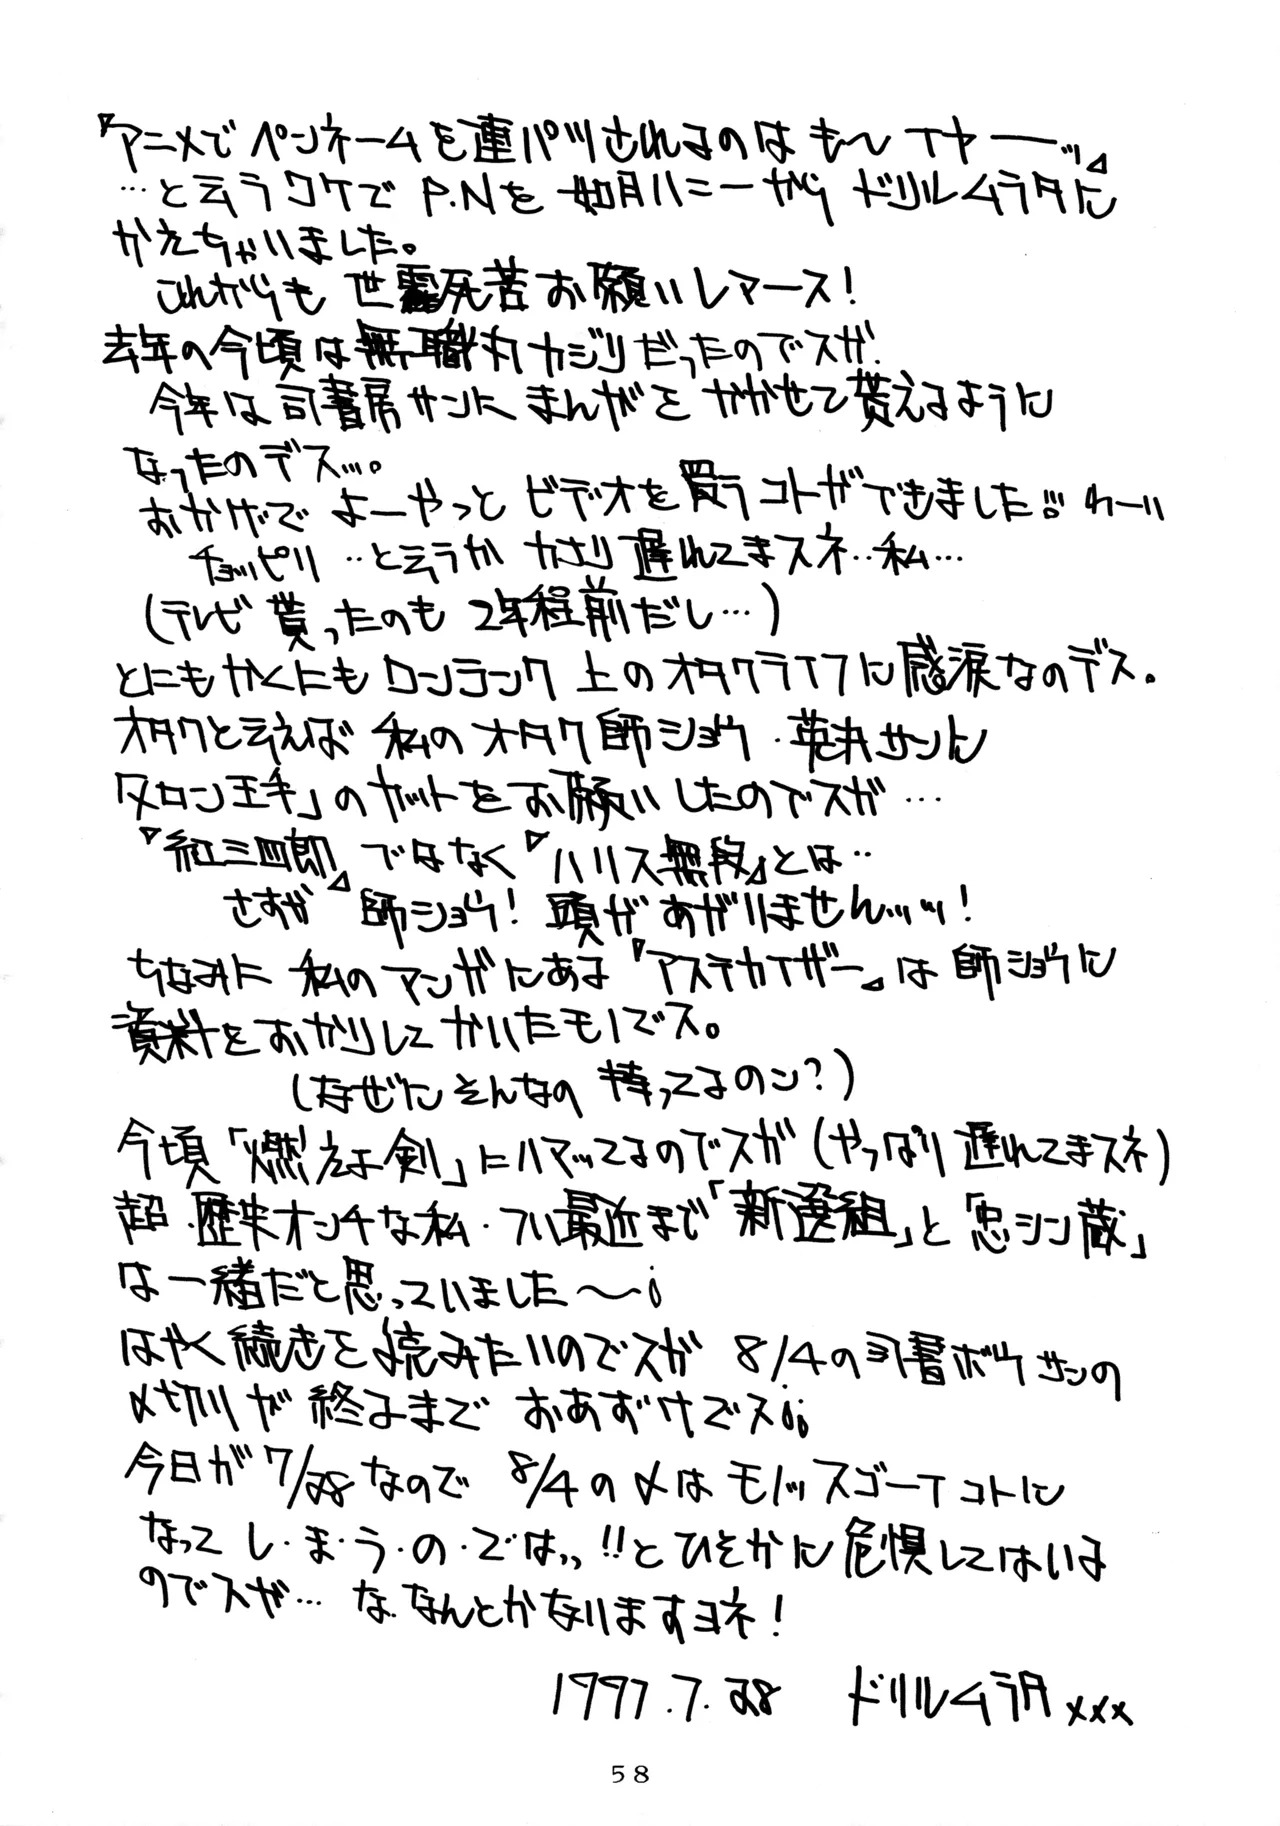 『アニメでペンネームを連パツされるのはも〜イヤーッ』
…と云うワケで P.Nを 如月ハニーから ドリルムラタに
かえちゃいました。
これからも 世露死苦お願いしマース!
去年の今頃は無職丸カジリだったのでスガ、
今年は司書房サンに まんがを かかせて貰えるように
なったのデス…。
おかげで よーやっと ビデオを買うコトができました!! わーい
チョッピリ …と云うか かなり 遅れてまスネ…私…
(テレビ 貰ったのも 2年程前だし…)
とにもかくにも ワンランク 上の オタクライフに感涙なのデス。
オタクと云えば 私の オタク師ショウ・英丸サンに
タロン王手」の カットを お願いしたのでスガ…
『紅三四郎』ではなく『ハリス無段』とは…
さすが 師ショウ! 頭があがりませんッッ!
ちなみに 私のマンガにある『アステカイザー』は 師ショウに
資料をおかりして かいたモノデス。
(なぜに そんなの 持ってるのン?)
今頃「燃えよ剣」にハマってるのでスガ (やっぱり 遅れてまスネ)
超・歴史オンチな私・つい最近まで「新選組」と「忠シン蔵」
は一緒だと思っていました〜;
はやく続きを読みたいのでスガ 8/4の司書ボウサンの
〆切りが 終るまで おあずけでス;;
今日が 7/28なので 8/4の〆は モノッスゴーイ コトに
なって し・ま・う・の・ではっ!!と ひそかに 危惧してはいる
のでスガ… な、なんとかなりますヨネ!
1997.7.28 ドリルムラタ xxx
58